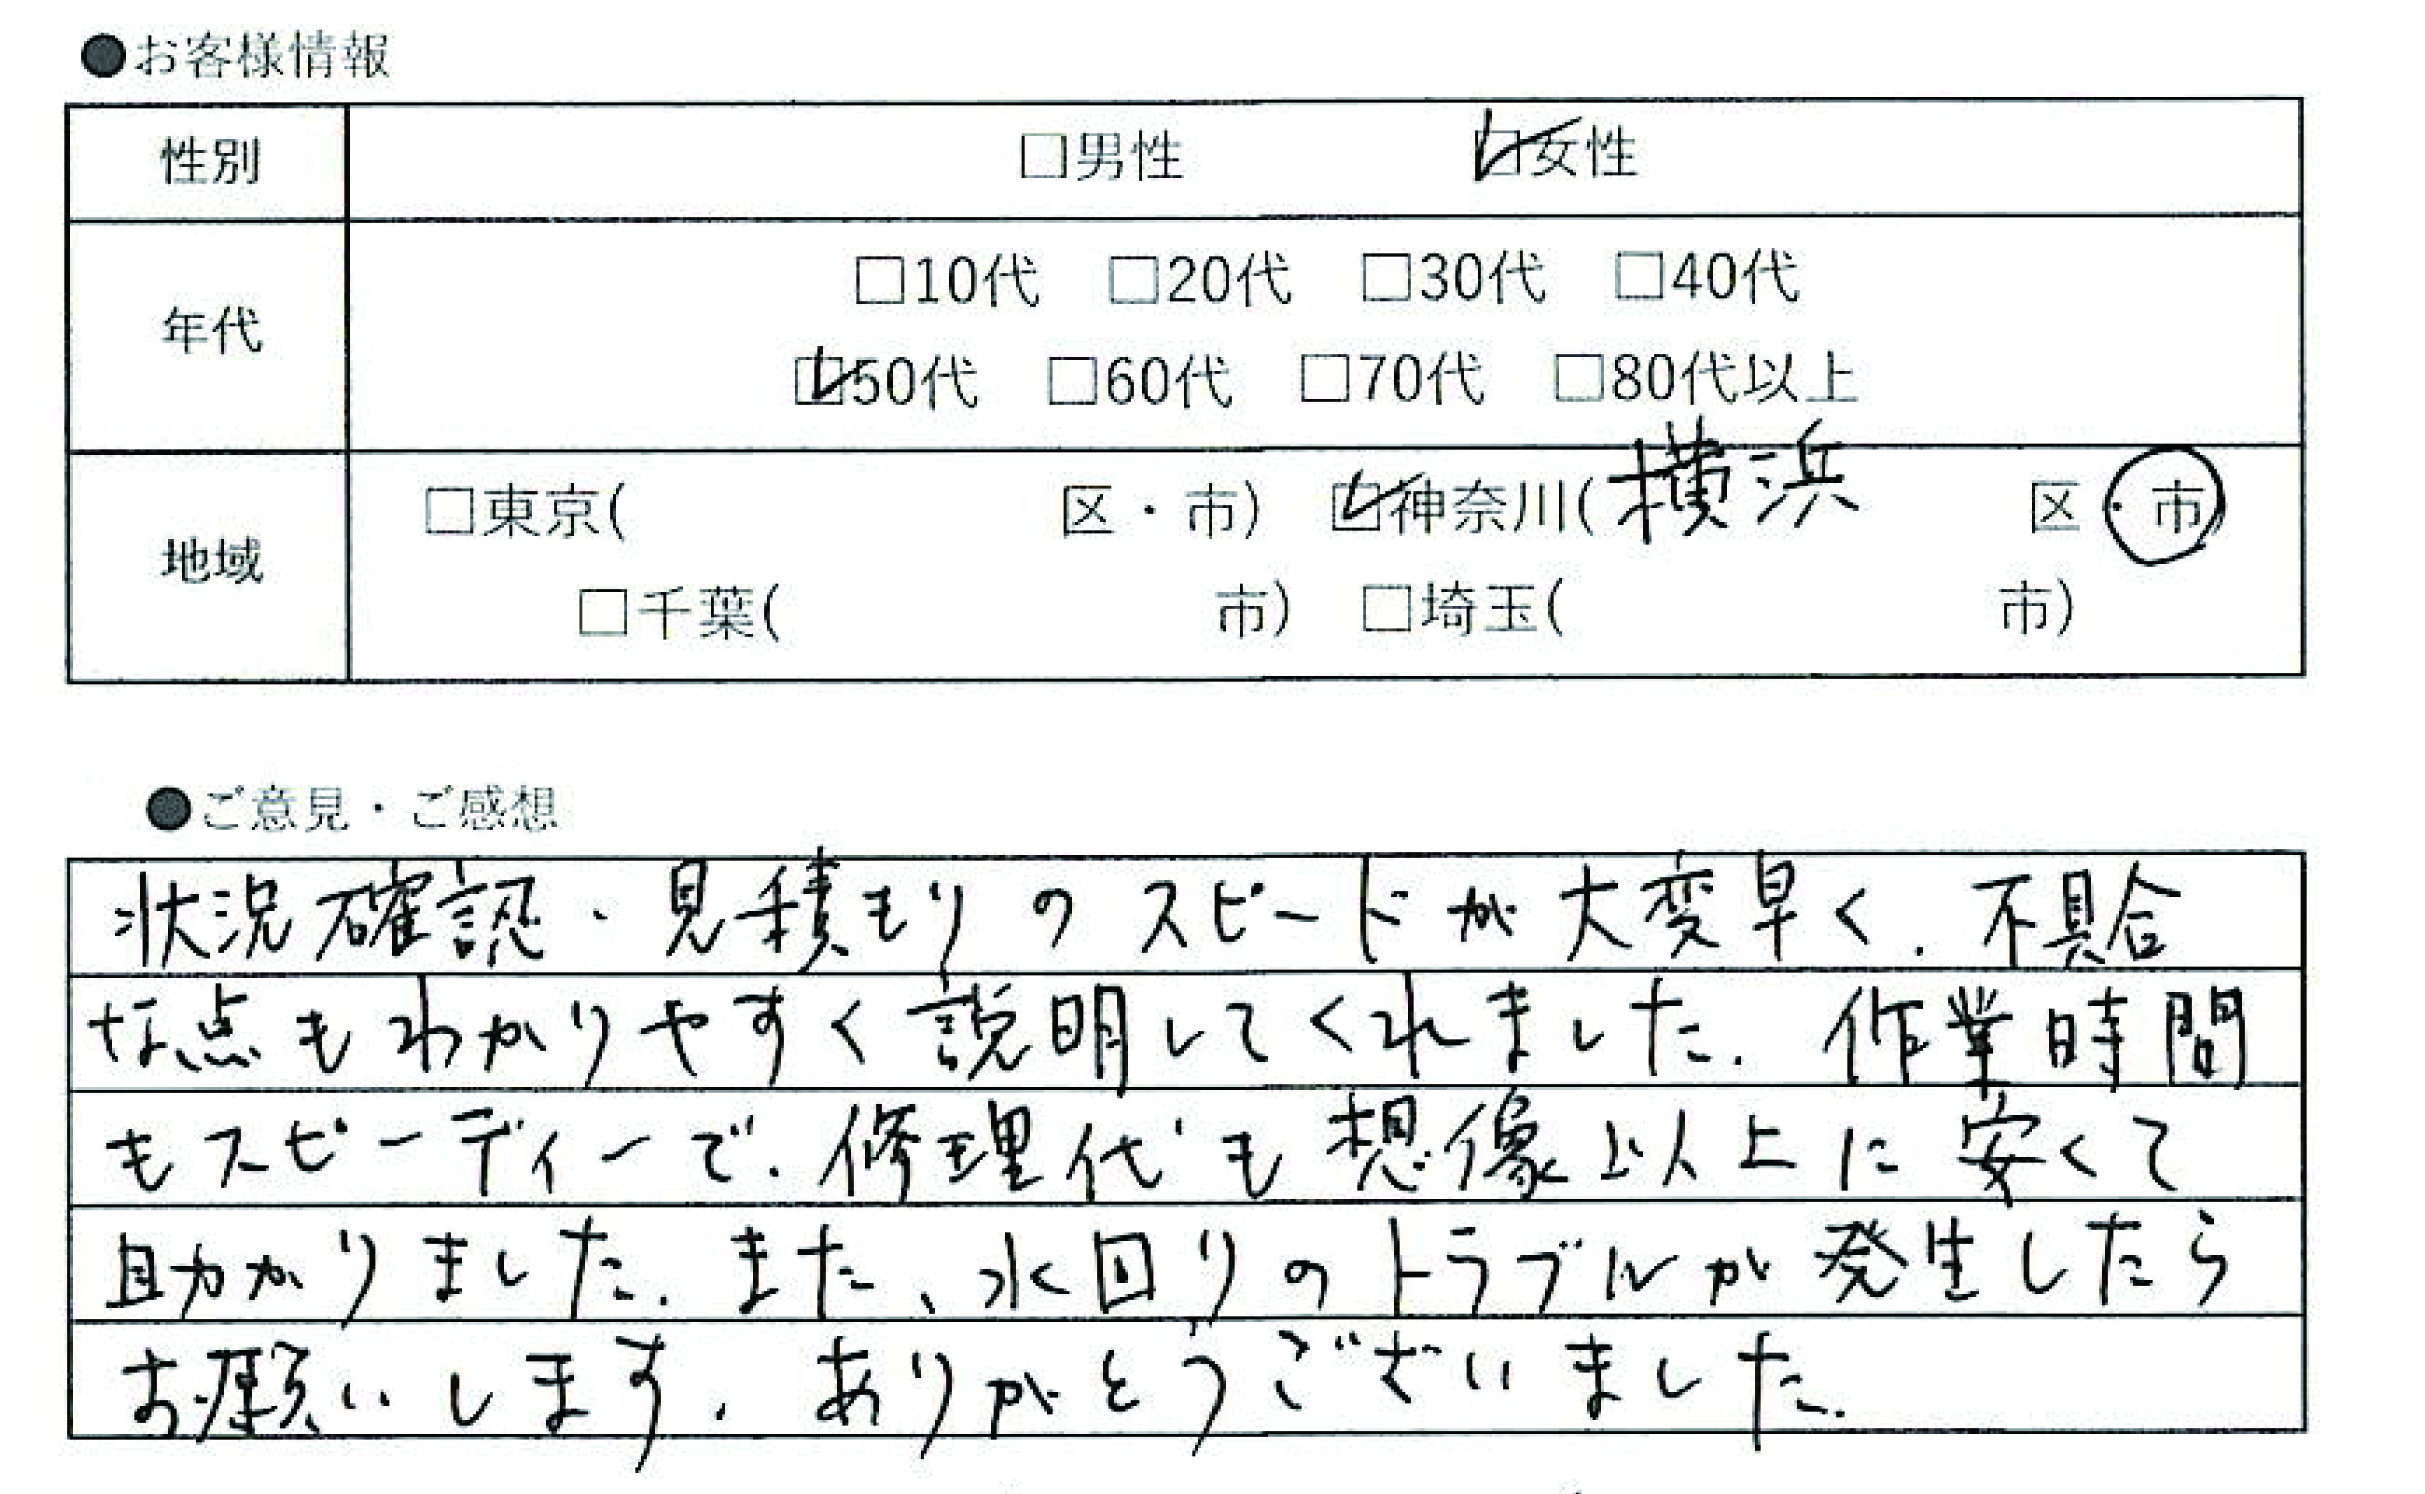 ●お客様情報
性別 □男性 ☑女性
年代 □10代 □20代 □30代 □40代
☑50代 □60代 □70代 □80代以上
地域 □東京( 区・市) ☑神奈川(横浜 区・市)
□千葉( 市) □埼玉( 市)
●ご意見・ご感想
状況確認・見積もりのスピードが大変早く、不具合
な点もわかりやすく説明してくれました。作業時間
もスピーディーで、修理代も想像以上に安くて
助かりました。また、水回りのトラブルが発生したら
お願いします。ありがとうございました。